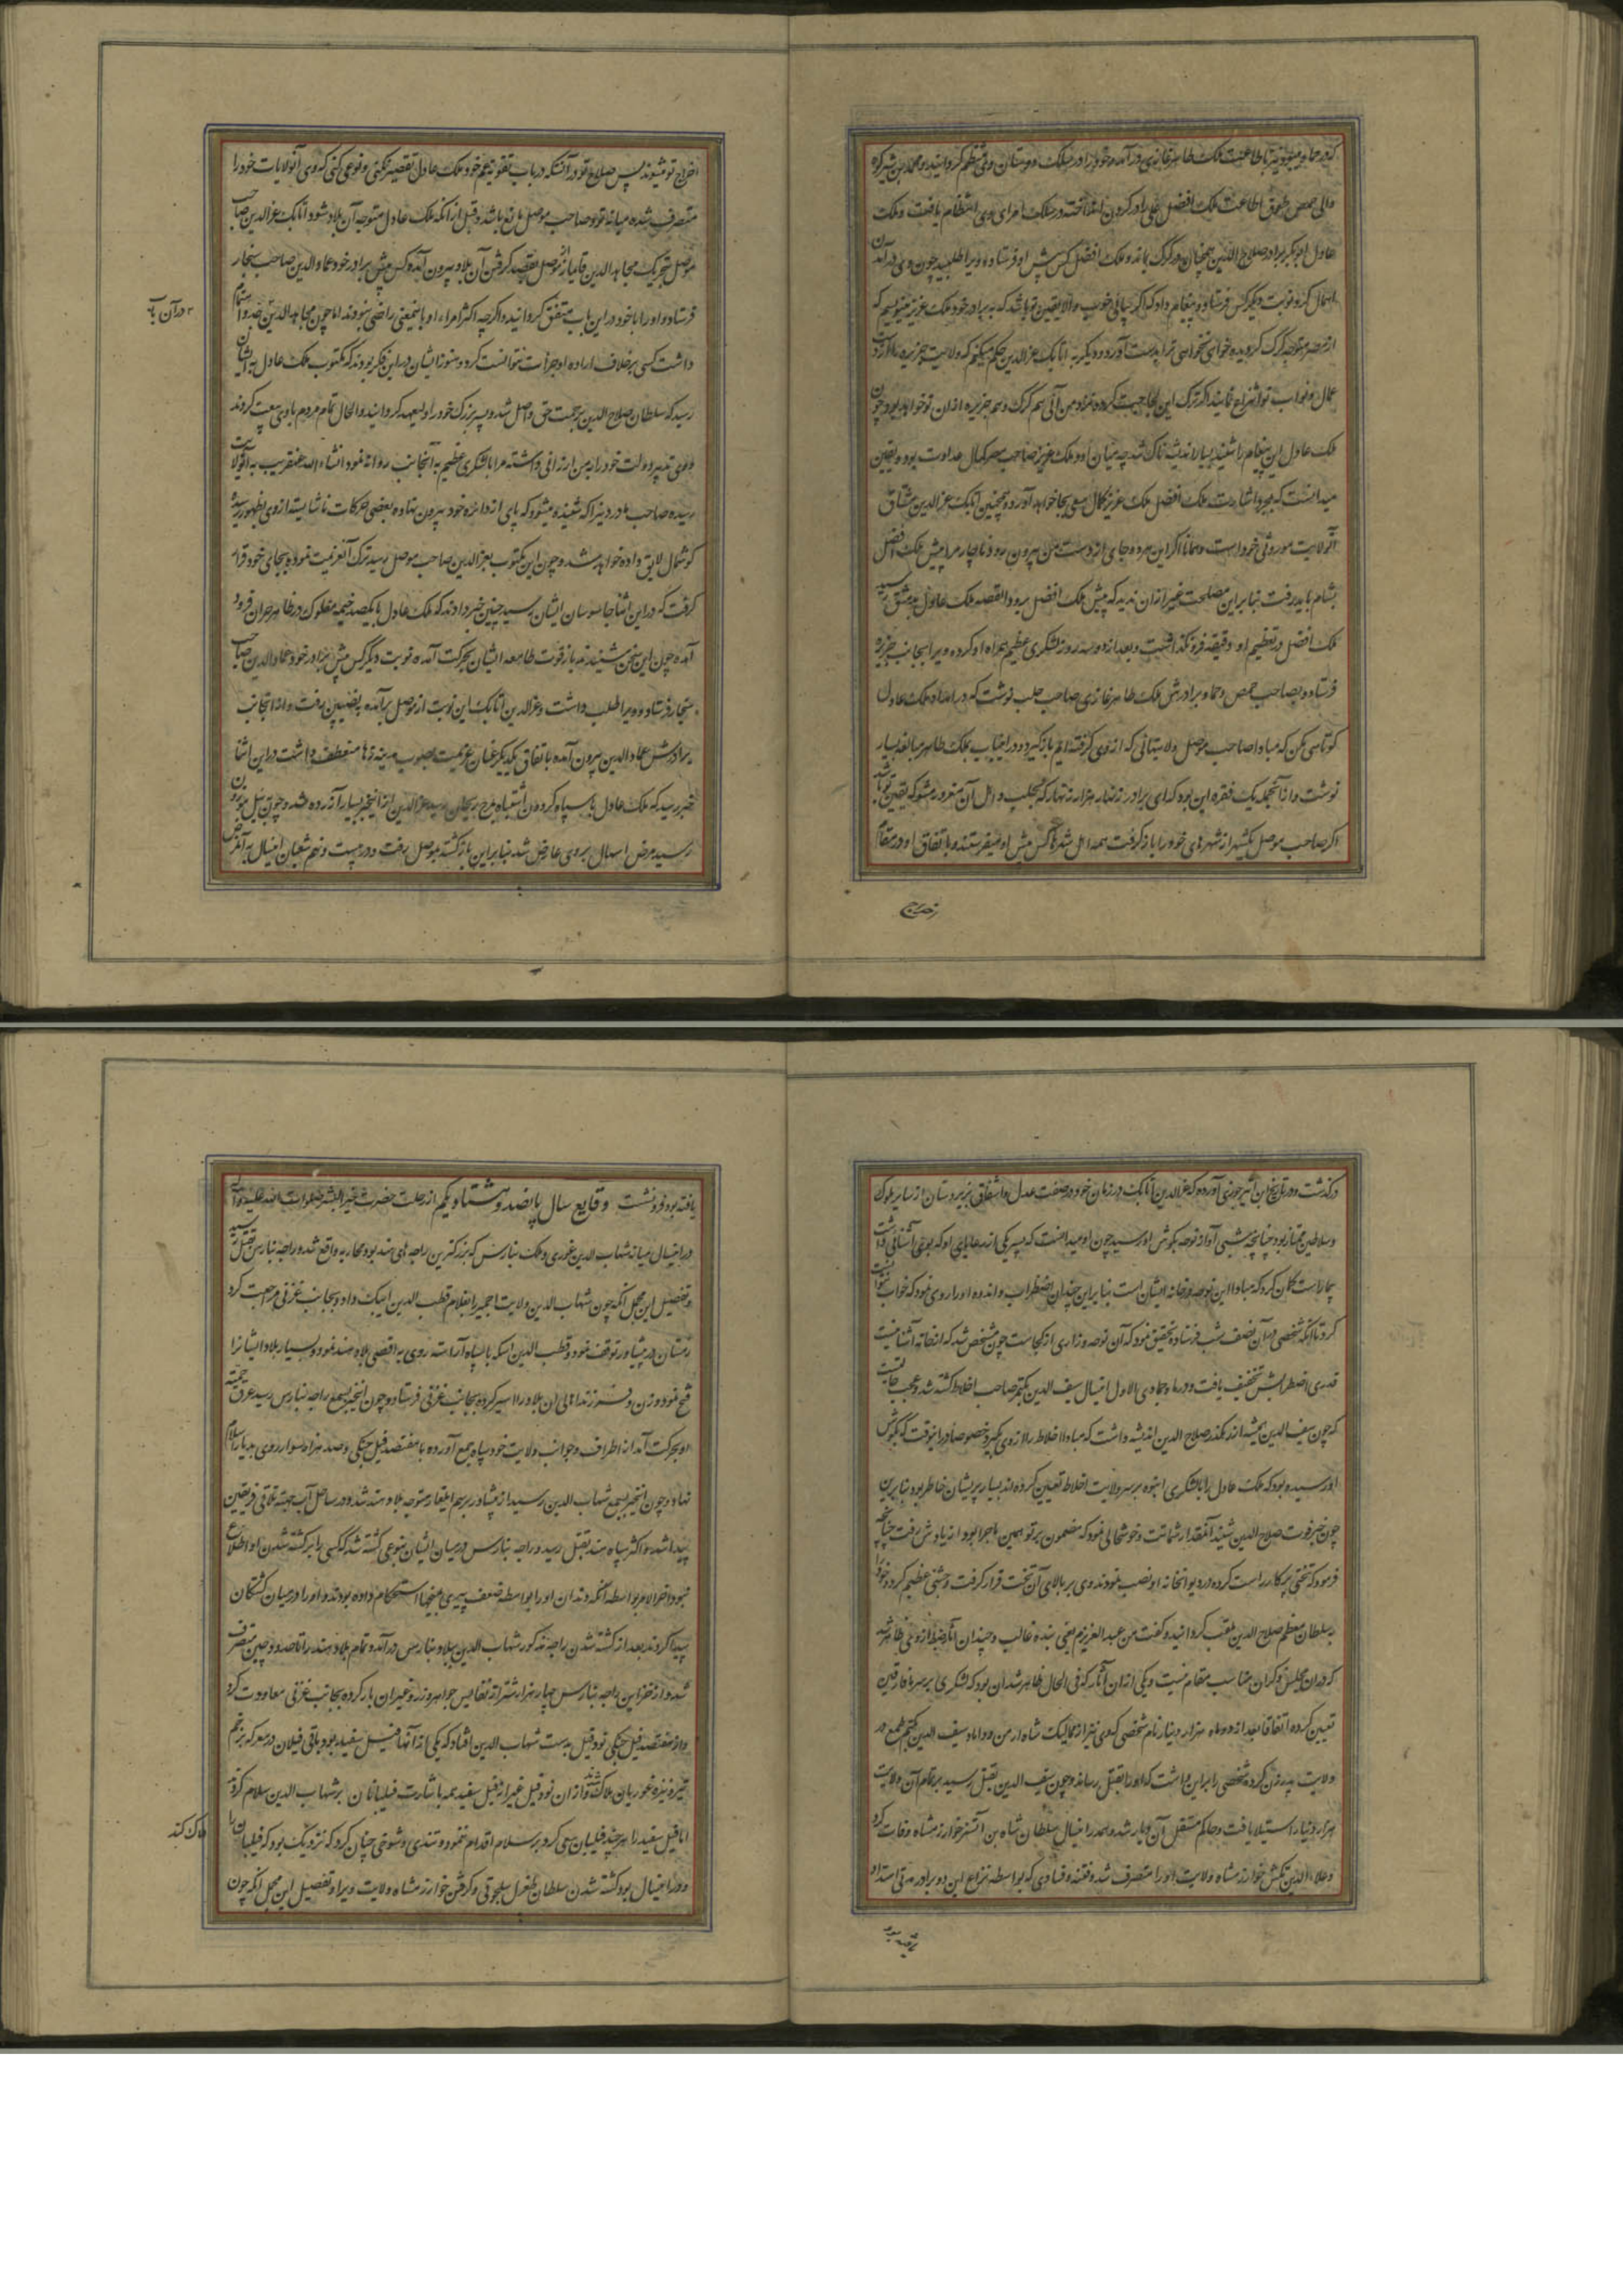 که در حما و میبودند با طاعت ملک ظاهر غازی در آمده خود را در سلک دوستان وی منتظم گردانیدند و محمد بن شیرکوه
والی حمص طوق اطاعت ملک افضل علی را در گردن انداخته در سلک امرای وی انتظام یافت و ملک
عادل ابوبکر برادر صلاح الدین همچنان در کرک بماند و ملک افضل کس پیش او فرستاد و ویرا طلبید چون وی در آمدن
اهمال کرد نوبت دیگر کس فرستاد و پیغام داد که اگر میائی خوب و الا یقین تو باشد که به برادر خود ملک عزیز مینویسم که
از مصر متوجه کرک گردیده خواهی نخواهی ترا بدست آورد و دیگر به اتابک عزالدین حکم میکنم که ولایت جزیره را از دست
عمال و نواب تو انتزاع نمایند اگر ترک این لجاجت کرده نزد من آئی هم کرک و هم جزیره از ان تو خواهد بود و چون
ملک عادل این پیغام را شنید بسیار اندیشه ناک شد چه میان او و ملک عزیز صاحب مصر کمال عداوت بود و یقین
میدانست که بمجرد اشارت ملک افضل ملک عزیز کمال سعی بجا خواهد آورد و همچنین اتابک عزالدین مشتاق
آن ولایت موروثی خود است و همانا اگر این هر دو جای از دست من بیرون رود ناچار مرا پیش ملک افضل
بشام باید رفت بنابر این مصلحت غیر از ان ندید که پیش ملک افضل برود القصه ملک عادل بدمشق رسید
ملک افضل در تعظیم او دقیقه فرو نگذاشت و بعد از دو سه روز لشکری عظیم همراه او کرده ویرا بجانب جزیره
فرستاد و بصاحب حمص و حما و برادرش ملک ظاهر غازی صاحب حلب نوشت که در امداد ملک عادل
کوتاهی مکن که مبادا صاحب موصل ولایتهائی که از وی گرفته ایم باز گیرد و در این باب بملک ظاهر مبالغه بسیار
نوشت و از آنجمله یک فقره این بود که ای برادر زنهار هزار زنهار که بحلب و اهل آن مغرور مشو که یقین تو باشد
اگر صاحب موصل یکشهر از شهرهای خود را باز گرفت همه اهل شهرها کس پیش او میفرستند و باتفاق او در مقام
اخراج تو میشوند پس صلاح تو در آنست که در باب تقویت عم خود ملک عادل تقصیر نکنی و نوعی کنی که وی آن ولایات خود را
متصرف شده میانه تو و صاحب موصل مانع باشد و قبل از آنکه ملک عادل متوجه آن بلاد شود اتابک عزالدین صاحب
موصل بتحریک مجاهد الدین قایماز از موصل بقصد گرفتن آن بلاد بیرون آمده کس پیش برادر خود عماد الدین صاحب سنجار
فرستاد و او را با خود در این باب متفق گردانید و اگر چه اکثر امراء او باینمعنی راضی نبودند اما چون مجاهد الدین اهتمام
در آن باب
داشت کسی بر خلاف اراده او جرأت نتوانست کرد و هنوز ایشان در این فکر بودند که مکتوب ملک عادل بایشان
رسید که سلطان صلاح الدین برحمت حق واصل شد و پسر بزرگ خود را ولیعهد گردانید و الحال تمام مردم با وی بیعت کردند
و وی تدبیر دولت خود را بمن ارزانی داشته مرا با لشکری عظیم به آنجانب روانه نمود انشاء الله عنقریب به آنولایت
رسیده صاحب ماردین را که شنیده میشود که پای از دایره خود بیرون نهاده بعضی حرکات ناشایسته از وی بظهور رسیده
گوشمال لایق داده خواهد شد و چون این مکتوب بعزالدین صاحب موصل رسید ترک آن عزیمت نموده بجای خود قرار
گرفت که در این اثنا جاسوسان ایشان رسیده چنین خبر دادند که ملک عادل با یکصد خیمه مفلوک در ظاهر حران فرود
آمده چون این سخن شنیدند باز قوت طامعه ایشان بحرکت آمده نوبت دیگر کس پیش برادر خود عماد الدین صاحب
سنجار فرستاد و ویرا طلب داشت و عزالدین اتابک این نوبت از موصل برآمده بنصیبین رفت و از آنجانب
برادرش عماد الدین بیرون آمده باتفاق یکدیگر عنان عزیمت بصوب مدینه رها منعطف داشت در این اثنا
خبر رسید که ملک عادل با سپاه گردون اشتباه بمرج ریحان رسید عزالدین از اینخبر بسیار آزرده شد و چون بتل موزن
رسید مرض اسهال بر وی عارض شد بنابراین بازگشته بموصل رفت و در بیست و نهم شعبان اینسال به آن مرض
درگذشت و در تاریخ ابن اثیر جزری آورده که عزالدین اتابک در زمان خود در صفت عدل و اشفاق بر زیردستان از سایر ملوک
و سلاطین ممتاز بود چنانچه شبی آواز نوحه بگوش او رسید چون او میدانست که پسر یکی از رعایای او که بوی آشنائی داشت
بیمار است گمان کرد که مبادا این نوحه در خانه ایشان است بنابراین چندان اضطراب و اندوه او را روی نمود که خواب نتوانست
کرد تا آنکه شخصی در آن نصف شب فرستاده تحقیق نمود که آن نوحه و زاری از کجاست چون مشخص شد که از خانه آشنا نیست
قدری اضطرابش تخفیف یافت و در ماه جمادی الاول اینسال سیف الدین بکتمر صاحب اخلاط کشته شد و عجب حالیست
که چون سیف الدین همیشه از رهگذر صلاح الدین اندیشه داشت که مبادا اخلاط را از وی بگیرد خصوصا در اینوقت که بگوش
او رسیده بود که ملک عادل را با لشکری انبوه بر سر ولایت اخلاط تعیین کرده اند بسیار پریشان خاطر بود بنابرین
چون خبر فوت صلاح الدین شنید آنقدر شماتت و خوشحالی نمود که مضمون بر تو همین ماجرا بود از یادش رفت چنانچه
فرمود که تختی پرکار راست کرده در دیوانخانه او نصب نمودند وی بر بالای آن تخت قرار گرفت و جشنی عظیم کرد و خود را
بسلطان معظم صلاح الدین ملقب گردانیده گفت من عبد العزیزم یعنی بنده غالب و چندان آثار ضبط از وی ظاهر شد
که در ان مجلس ذکر ان مناسب مقام نیست و یکی از ان آثار که فی الحال ظاهر شد ان بود که لشکری بر سر میافارقین
تعیین کرده اتفاقا بعد از دو ماه هزار دینار نام شخصی که وی نیز از ممالیک شاه ارمن و داماد سیف الدین بکتمر طمع در
ولایت پدر زن کرده شخصی را بر این داشت که او را بقتل رساند و چون سیف الدین بقتل رسید بر تمام آن ولایت
هزار دینار استیلا یافت و حاکم مستقل آن دیار شد و هم در اینسال سلطان شاه بن اتسز خوارزمشاه وفات کرد
و علاء الدین تکش خوارزمشاه ولایت او را متصرف شد و فتنه و فسادی که بواسطه نزاع این دو برادر مدتی امتداد
یافته بود فرو نشست وقایع سال پانصد و هشتاد یکم از رحلت حضرت خیر البشر صلوات الله علیه و آله
در اینسال میانه شهاب الدین غوری و ملک بنارس که بزرگترین راجه های هند بود محاربه واقع شد و راجه بنارس بقتل رسید
و تفصیل این مجمل آنکه چون شهاب الدین ولایت اجمیر را بغلام قطب الدین ایبک داد و بجانب غزنی مراجعت کرد
زمستان در پشاور توقف نمود و قطب الدین ایبک با سپاه آراسته روی به اقصی بلاد هند نمود و بسیار بلاد ایشانرا
فتح نمود و زن و فرزند اهالی ان بلاد را اسیر کرده بجانب غزنی فرستاد و چون اینخبر بسمع راجه بنارس رسید عرق حمیت
او بحرکت آمد از اطراف و جوانب ولایت خود سپاه جمع آورده با هفتصد فیل جنگی و صد هزار سوار روی بدیار اسلام
نهاد و چون اینخبر بسمع شهاب الدین رسید از پشاور برسم ایلغار متوجه بلاد هند شد و در ساحل آب جمنه تلاقی فریقین
پیدا شد و اکثر سپاه هند بقتل رسید و راجه بنارس در میان ایشان بنوعی کشته شد که کسی را بر کشته شدن او اطلاع
نبود آخر الامر بواسطه آنکه دندان او را بواسطه ضعف پیری بمیخها استحکام داده بودند او را در میان کشتگان
پیدا کردند بعد از کشته شدن راجه مذکور شهاب الدین ببلاد بنارس در آمده و تمام بلاد هند را تا حدود چین متصرف
شد و از خزاین راجه بنارس چهار هزار شتر از نفایس جواهر و زر و غیر ان بار کرده بجانب غزنی معاودت کرد
و از هفتصد فیل جنگی نود فیل بدست شهاب الدین افتاد که یکی از آنها فیل سفید بود و باقی فیلان در معرکه بزخم
تیر و نیزه غوریان هلاک شدند و از ان نود فیل غیر از فیل سفید همه باشارت فیلبانان بر شهاب الدین سلام کردند
اما فیل سفید را هر چند فیلبان سعی کرد بر سلام اقدام ننمود و تندی و شوخی چنان کرد که نزدیک بود که فیلبان را
هلاک کند
و در اینسال بود کشته شدن سلطان طغرل سلجوقی و گرفتن خوارزمشاه ولایت ویرا و تفصیل این مجمل آنکه چون